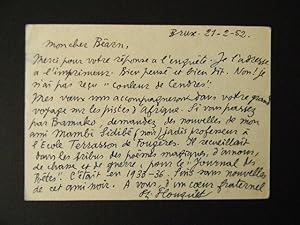 Brux. 21-2-52.
Mon cher Béarn,
Merci pour votre réponse à l'enquête. Je l'adresse
à l'imprimeur. Bien pensé et bien dit. Non! Je
n'ai pas reçu "Couleur de Cendres".
Mes vœux vous accompagneront dans votre grand
voyage sur les pistes d'Afrique. Si vous passez
par Bamako, demandez des nouvelles de mon
ami Mambi Sidibé (noir) jadis professeur à
l'Ecole Terrasson de Fougères. Il recueillait
dans les tribus des poèmes magiques, d'amour,
de chants et de guerre, pour le "Journal des
Poètes". C'était en 1935-36. Suis sans nouvelles
de cet ami noir. A vous, d'un cœur fraternel
P.L. Flouquet